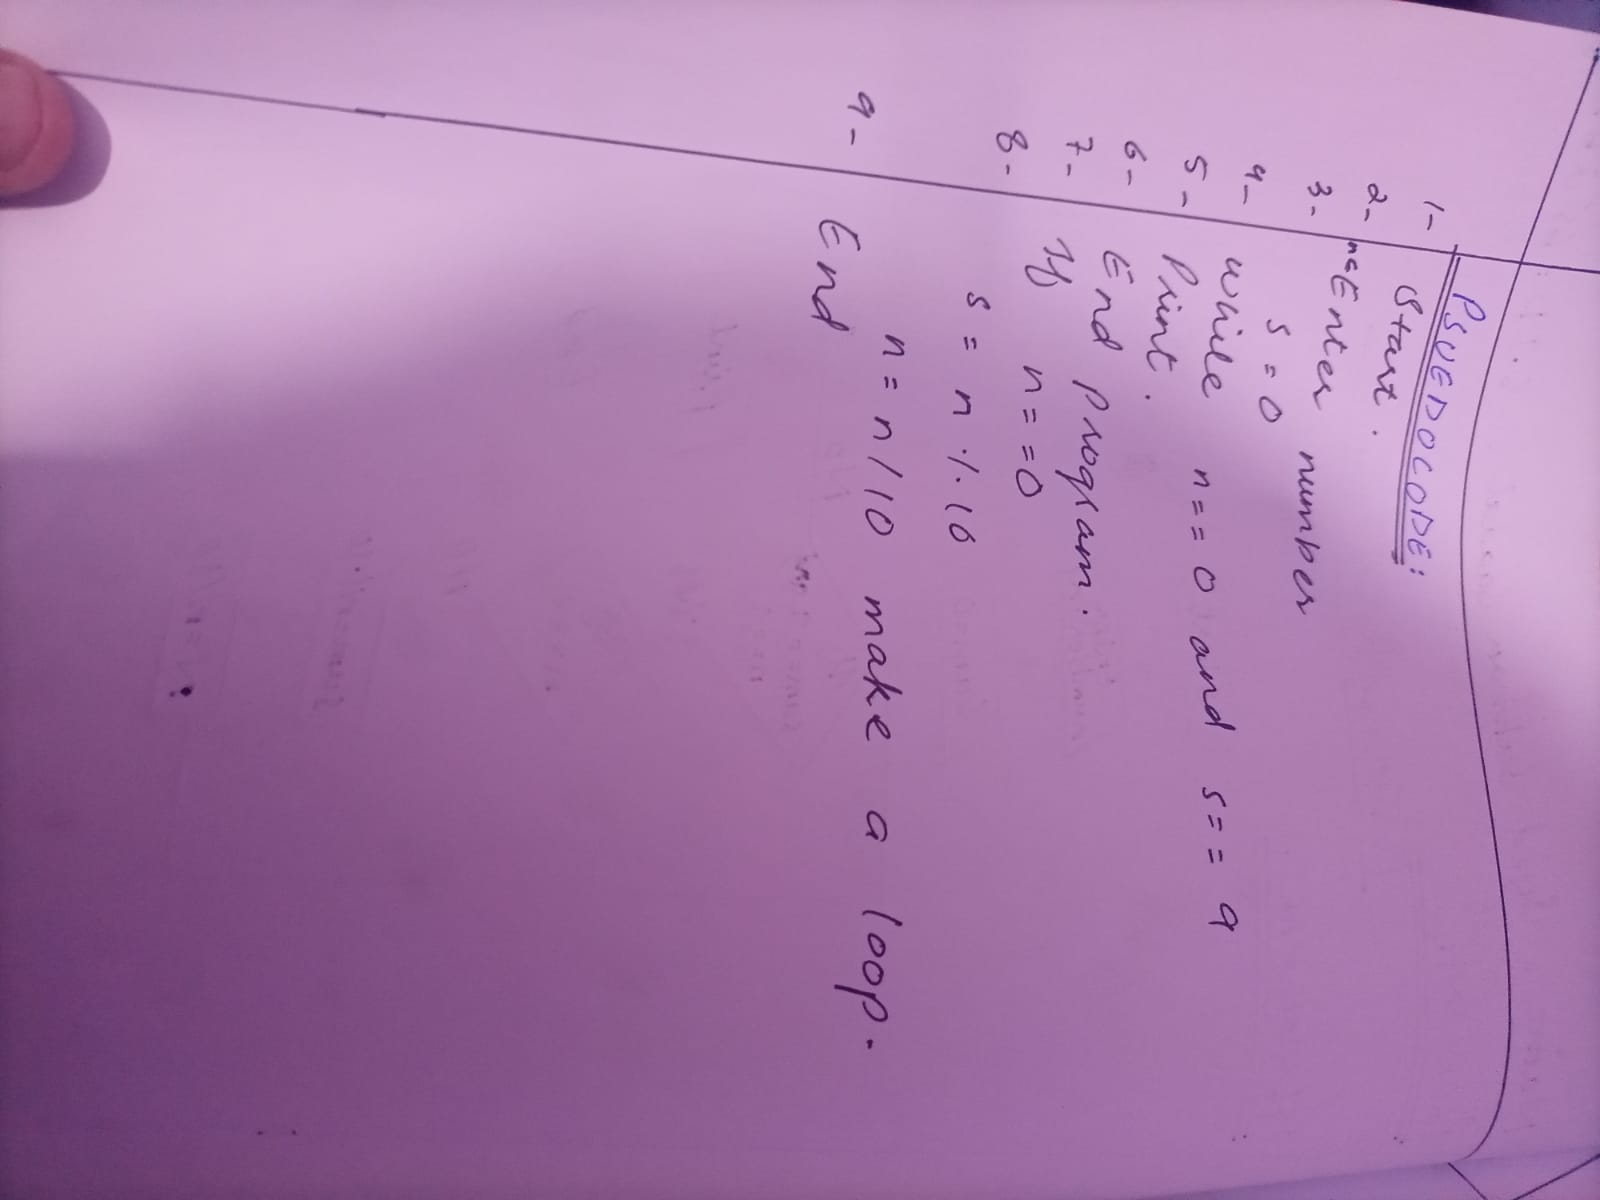 PSUEDOCODE:
1- Start.
2- n=Enter number
3- s = 0
4- while n==0 and s==9
5- Print.
6- End program.
7- If n==0
8- s = n % 10
n = n/10 make a loop.
9- End